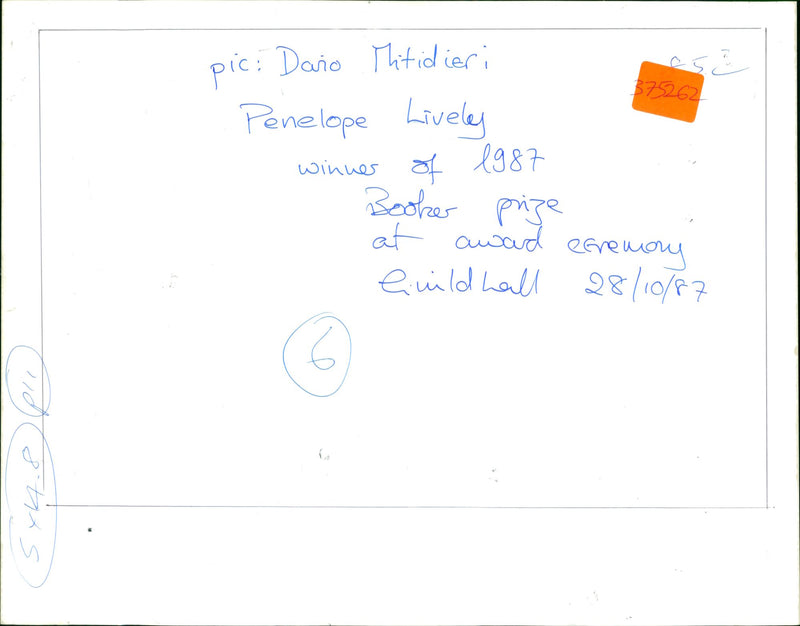 pic: Dario Mitidieri
375262
Penelope Lively
winner of 1987
Booker prize
at award ceremony
Guildhall 28/10/87
6
p11
5 x 14.8